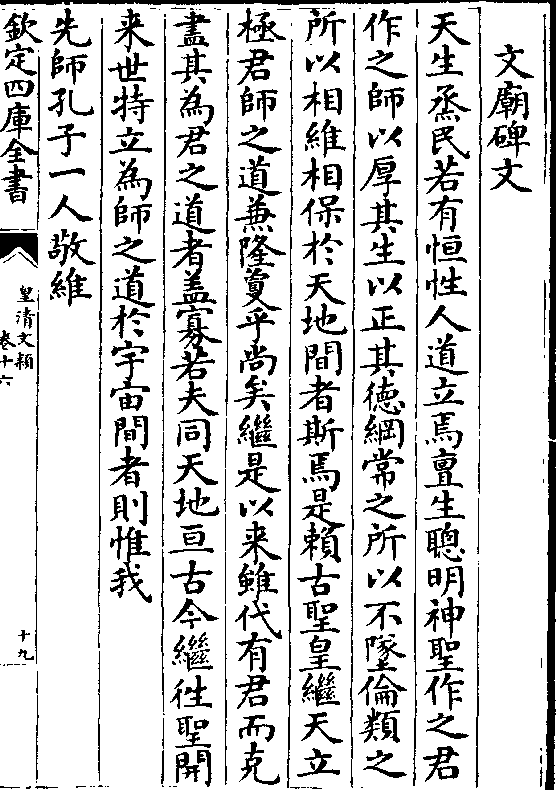 文廟碑文
天生烝民若有恒性人道立焉亶生聰明神聖作之君
作之師以厚其生以正其德綱常之所以不墜倫類之
所以相維相保於天地間者斯焉是賴古聖皇繼天立
極君師之道兼隆敻乎尚矣繼是以来雖代有君而克
盡其為君之道者盖寡若夫同天地亘古今繼徃聖開
来世特立為師之道於宇宙間者則惟我
先師孔子一人敬維
欽定四庫全書
皇清文穎
卷十六
十九